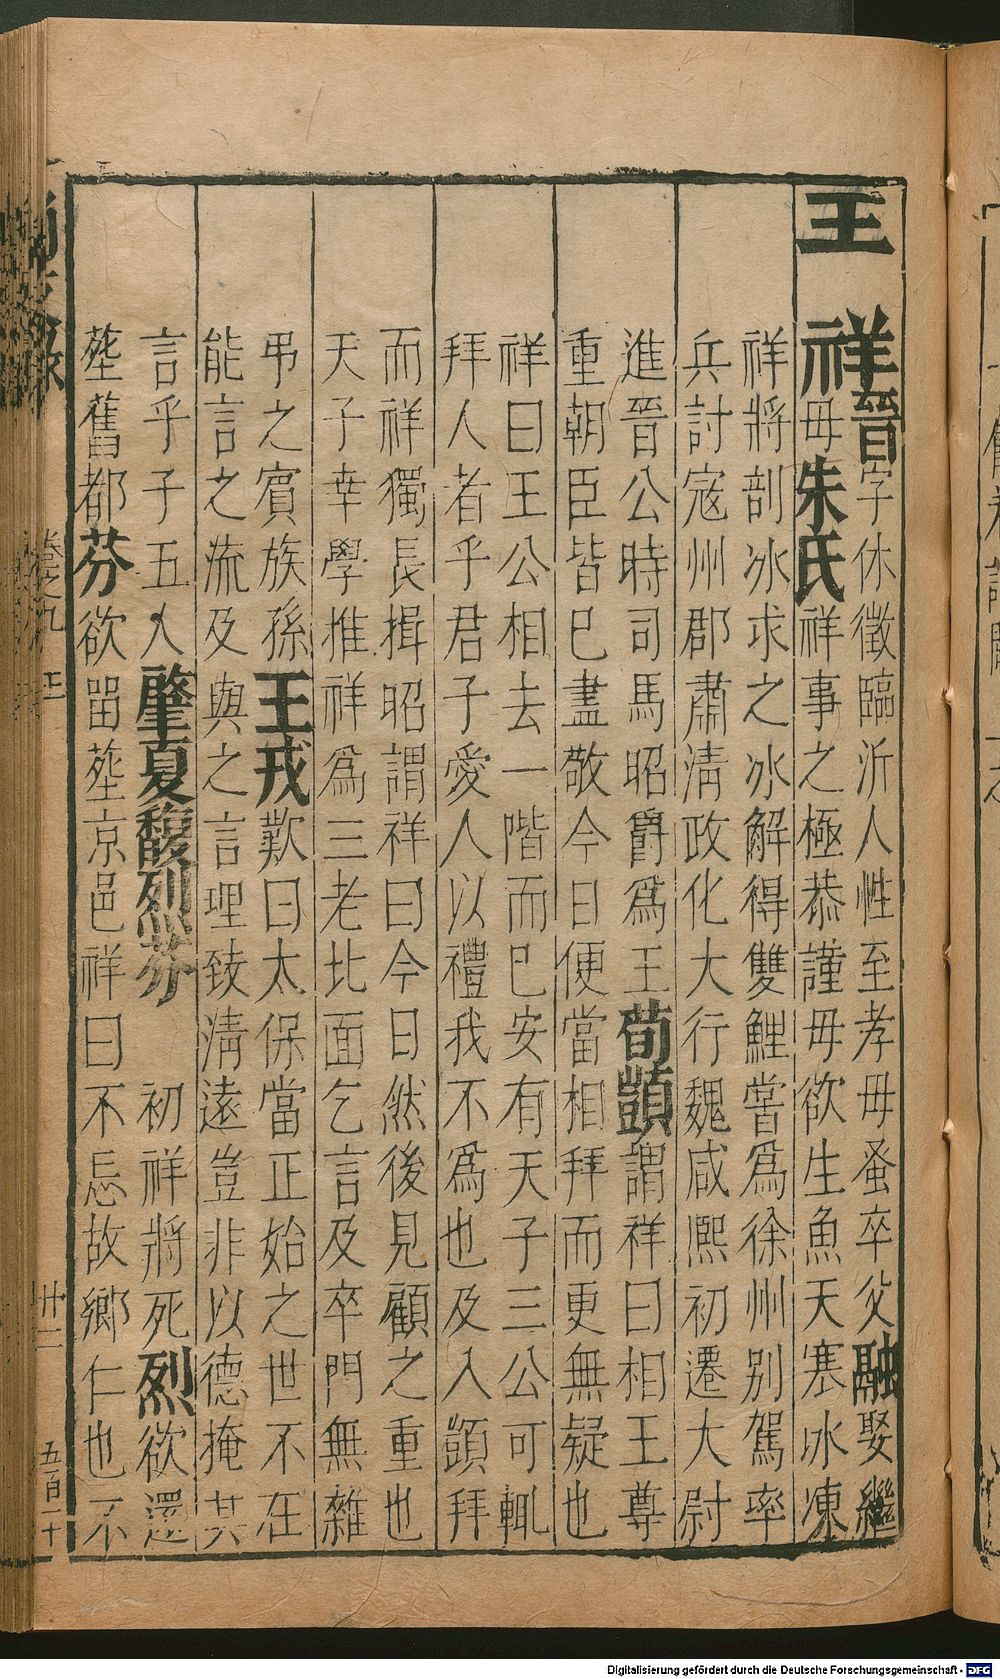 王
祥晉字休徵臨沂人性至孝母蚤卒父融娶繼
母朱氏祥事之極恭謹母欲生魚天寒冰凍
祥將剖冰求之冰解得雙鯉嘗爲徐州别駕率
兵討寇州郡肅淸政化大行魏咸熙初遷大尉
進晉公時司馬昭爵爲王荀顗謂祥曰相王尊
重朝臣皆已盡敬今日便當相拜而更無疑也
祥曰王公相去一階而已安有天子三公可輒
拜人者乎君子愛人以禮我不爲也及入顗拜
而祥獨長揖昭謂祥曰今日然後見顧之重也
天子幸學推祥爲三老北面乞言及卒門無雜
弔之賓族孫王戎歎曰太保當正始之世不在
能言之流及與之言理致淸遠豈非以德掩其
言乎子五人肇夏馥烈芬 初祥將死烈欲還
塟舊都芬欲畱塟京邑祥曰不忘故鄉仁也不
卷之九
卅二
五百二十
Digitalisierung gefördert durch die Deutsche Forschungsgemeinschaft - DFG